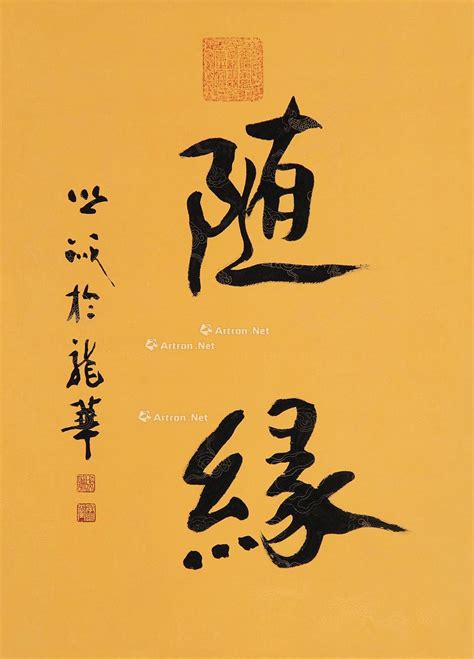 随緣
照誠於龍華
Artron.Net
Artron.Net
Artron.Net